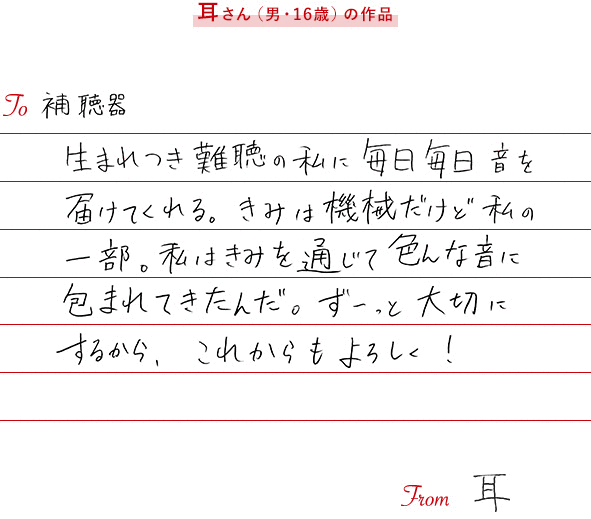 耳さん（男・16歳）の作品
To 補聴器
生まれつき難聴の私に毎日毎日音を
届けてくれる。きみは機械だけど私の
一部。私はきみを通じて色んな音に
包まれてきたんだ。ずーっと大切に
するから、これからもよろしく！
From 耳